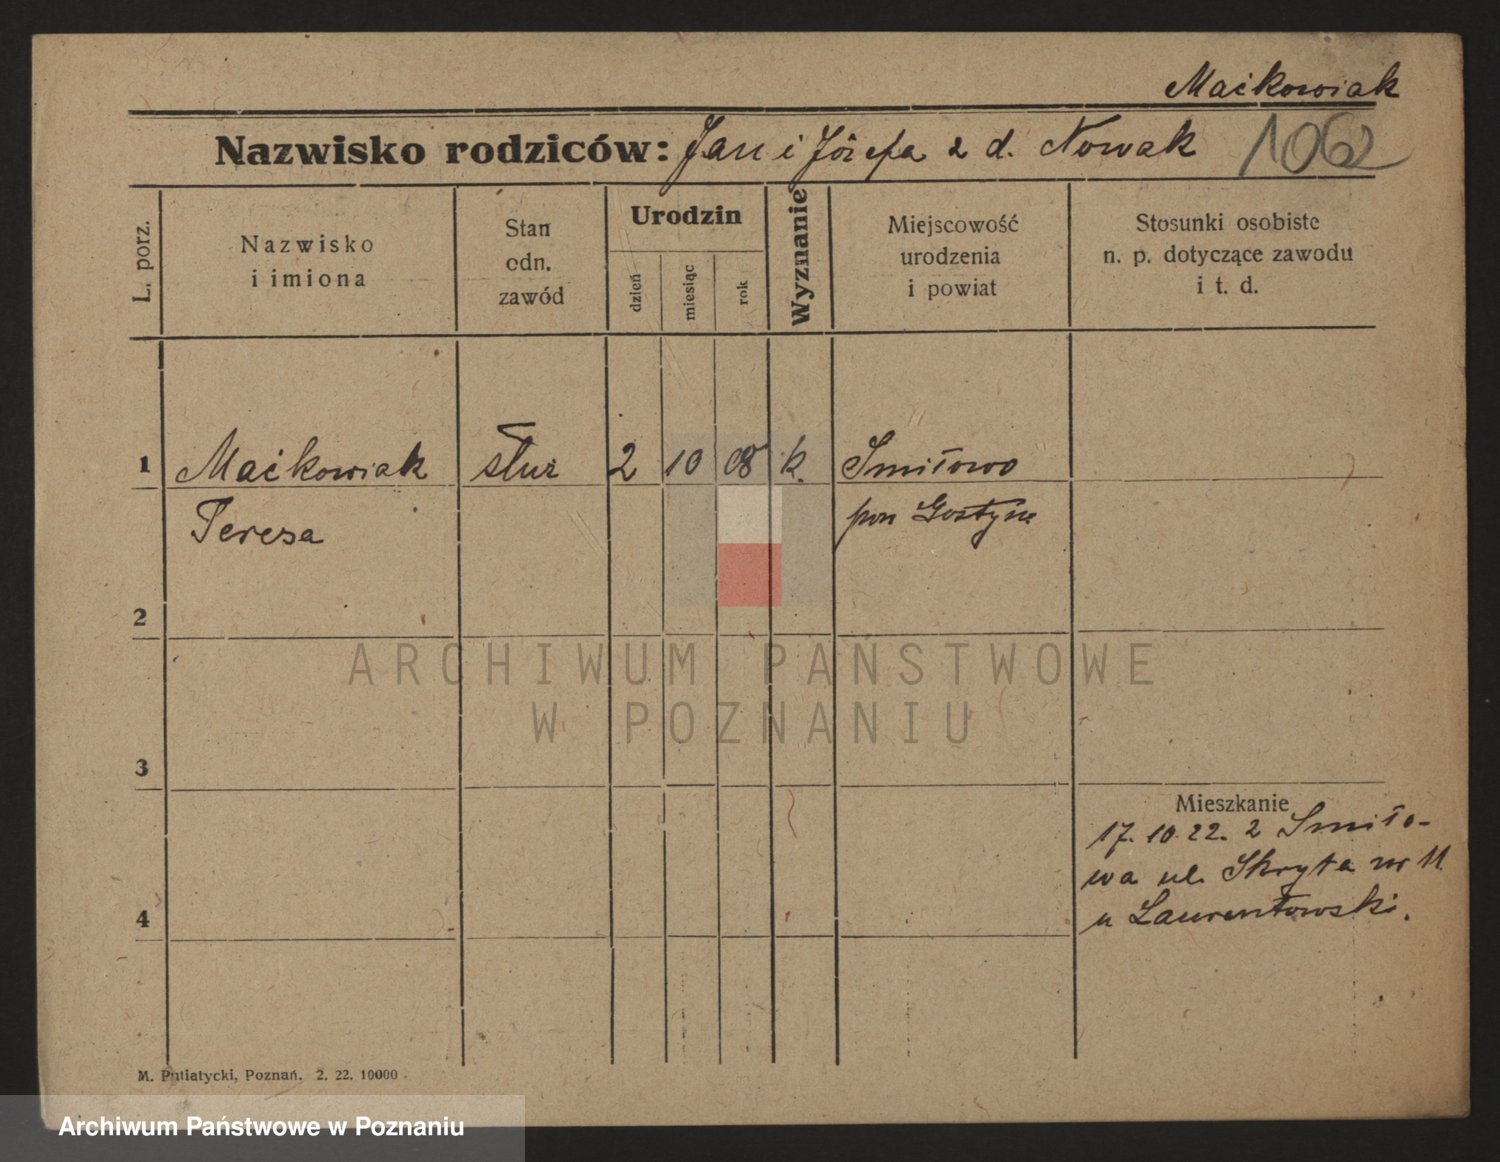 Maćkowiak
Nazwisko rodziców: Jan i Józefa z d. Nowak 1062
L. porz.
Nazwisko
i imiona
Stan
odn.
zawód
Urodzin
dzień
miesiąc
rok
Wyznanie
Miejscowość
urodzenia
i powiat
Stosunki osobiste
n. p. dotyczące zawodu
i t. d.
1 Maćkowiak służ 2 10 08 k. Smiłowo
Teresa pow Gostyń
2
ARCHIWUM PAŃSTWOWE
W POZNANIU
3
Mieszkanie
17. 10. 22. z Smiło-
wa ul. Skryta nr 11
u Laurentowski.
4
M. Putiatycki, Poznań. 2. 22. 10000
Archiwum Państwowe w Poznaniu